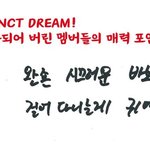 NCT DREAM!
되어 버린 멤버들의 매력 포인
완숀 시끄러운 바보
걸어 다니는게 귀여